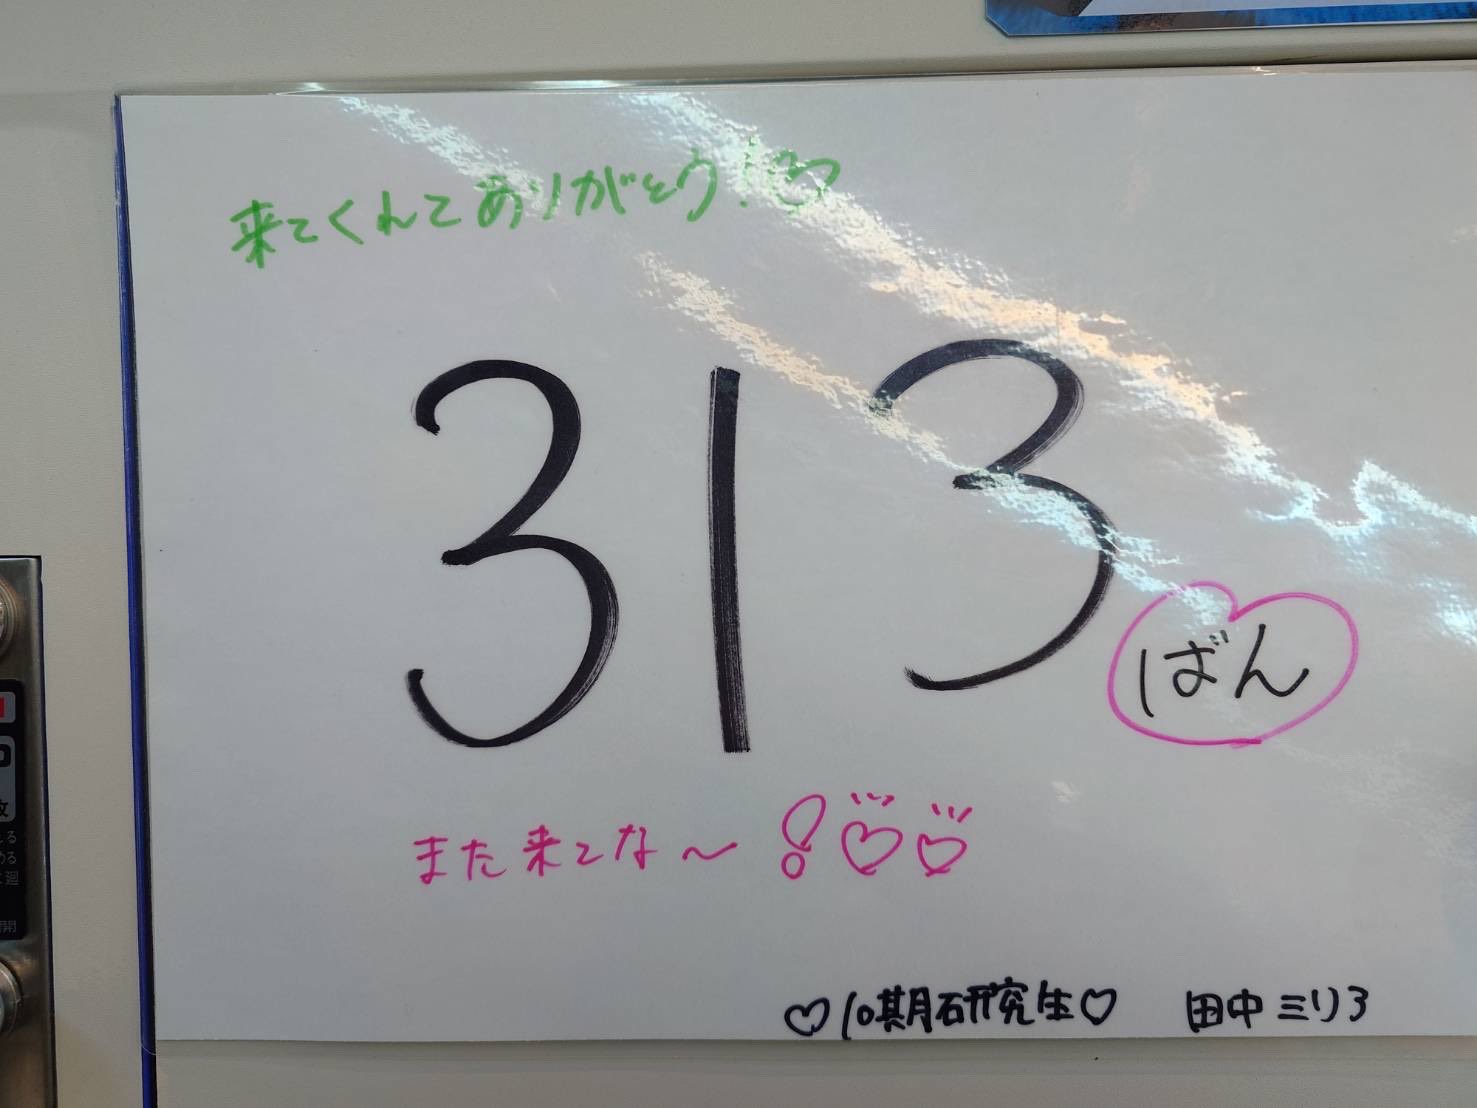 来てくれてありがとう!♡
313
ばん
また来てな〜!♡♡
♡10期研究生♡ 田中ミリヲ